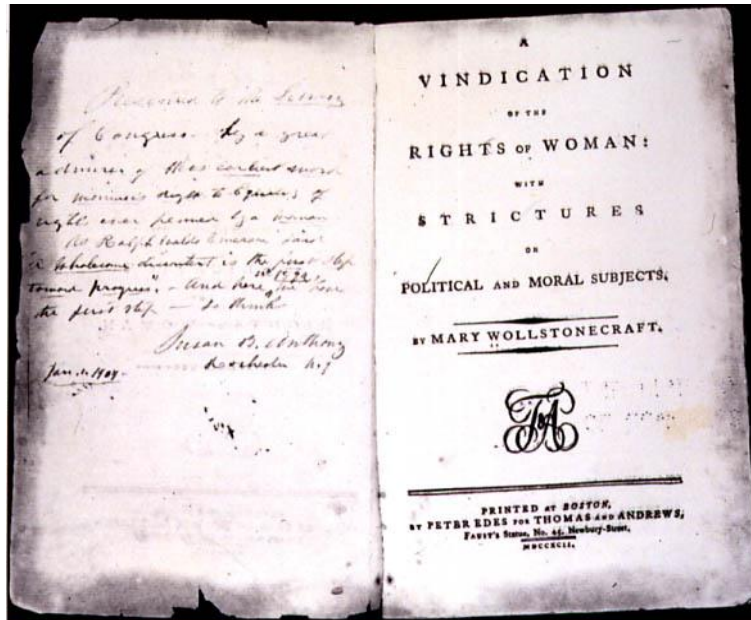 Presented to the Library
of Congress by a great
admirer of this earliest sword
for woman's right to Equality of
rights ever penned by a woman
As Ralph Waldo Emerson said
"A Wholesome discontent is the first step
toward progress". - And here in 1792 we have
the first step - so think
Susan B. Anthony
Rochester N.Y
Jan. 1. 1904
A
VINDICATION
OF THE
RIGHTS OF WOMAN:
WITH
STRICTURES
ON
POLITICAL AND MORAL SUBJECTS.
BY MARY WOLLSTONECRAFT.
T&A
PRINTED AT BOSTON,
BY PETER EDES FOR THOMAS AND ANDREWS,
FAUST's Statue, No. 45, Newbury-Street,
MDCCXCII.